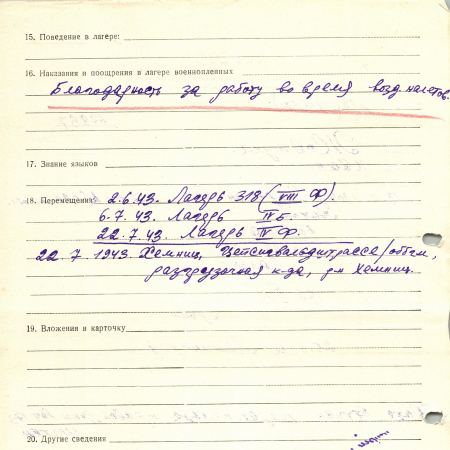 15. Поведение в лагере:
16. Наказания и поощрения в лагере военнопленных
Благодарность за работу во время возд. налетов.
17. Знание языков
18. Перемещения 2.6.43. Лагерь 318 (VIII Ф).
6.7.43. Лагерь IV Б.
22.7.43. Лагерь IV Ф.
22.7.1943. Хемниц,
разгрузочная к-да, р-н Хемниц.
19. Вложения в карточку
20. Другие сведения